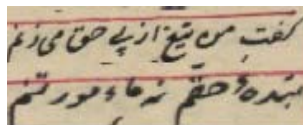 گفت من تیغ از پی حق می زنم
بنده حقم نه مامور تنم